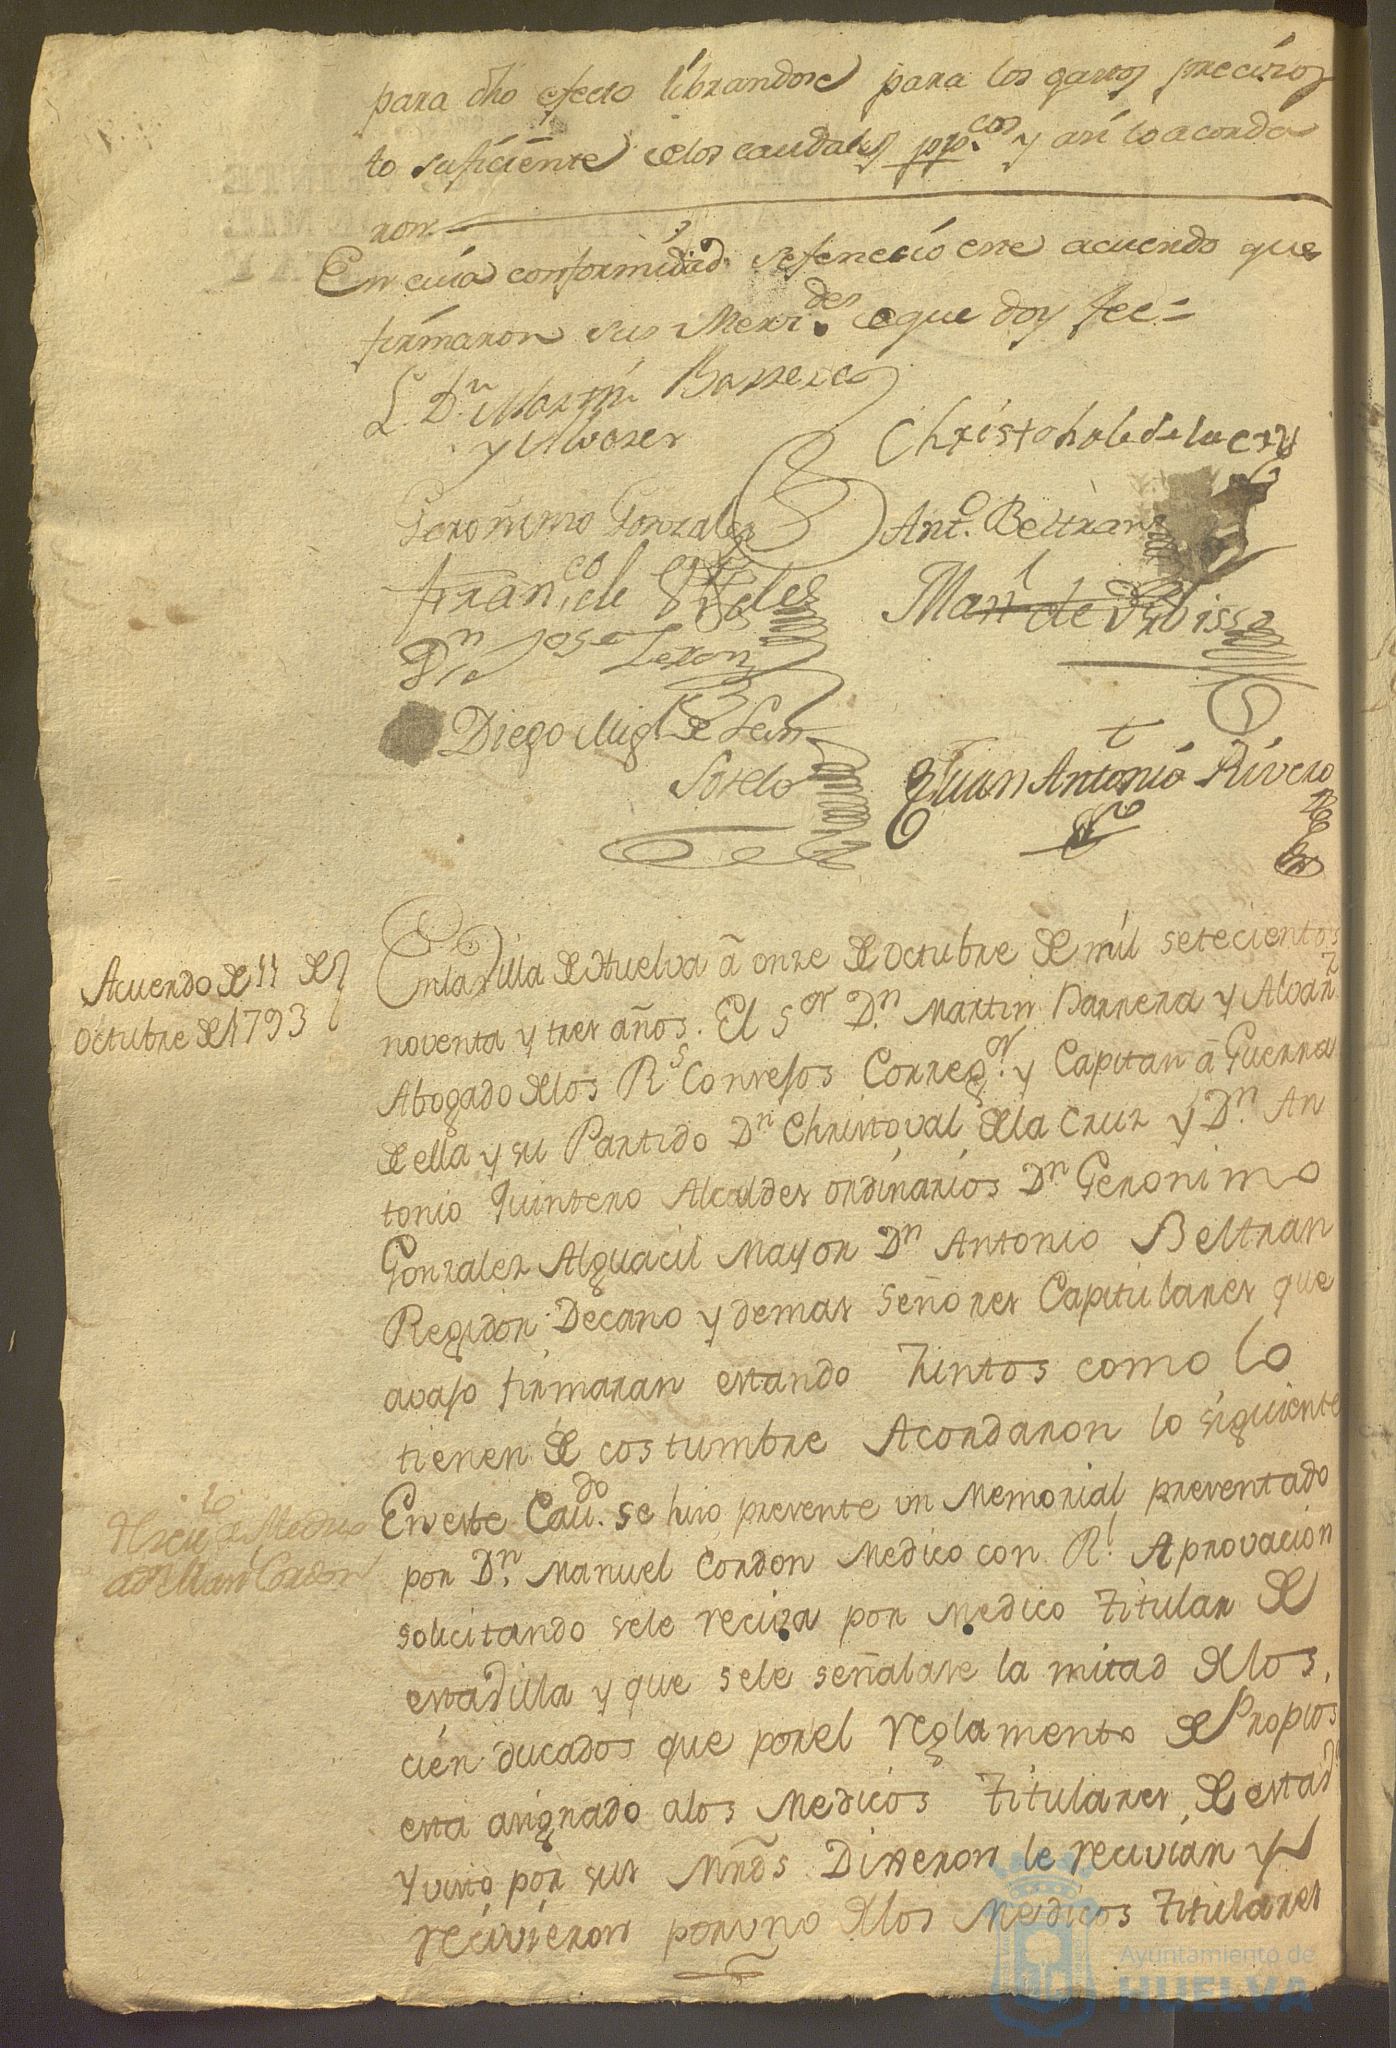 para dho efecto librandose para los gastos precisos
lo suficiente de los caudales pp.cos y asi lo acorda
ron
En cuia conformidad se fenecio este acuerdo que
firmaron sus Merzdes de que doy fee=
L. Dn. Martin Barrera
y Alvarez
Christobal de la Cruz
Geronimo Gonzalez
Anto. Beltran
Franco. de
Manl de
Dn Jose
Diego Migl de Leon
Sotelo
Juan Antonio Rivero
Acuerdo de 11 de
Octubre de 1793
En la Villa de Huelva â onze de Octubre de mil setecientos
noventa y tres años. El Sor Dn. Martin Barrera y Alvarz
Abogado de los Rs Consejos Corregor. y Capitan â Guerra
de ella y su Partido Dn Christoval de la Cruz y Dn. An
tonio Quintero Alcaldes ordinarios Dn Geronimo
Gonzalez Alguacil Mayor Dn Antonio Beltran
Regidor Decano y demas Señores Capitulares que
avajo firmaran estando Juntos como lo
tienen de costumbre Acordaron lo siguiente
En este Cavdo. se hizo presente un Memorial presentado
por Dn. Manuel Cordon Medico con Rl. Aprovacion
de Medico
a Dn Manl Cordon
solicitando sele reciva por Medico Titular de
esta Villa y que sele señalase la mitad de los
cien ducados que por el reglamento de Propios
esta asignado a los Medicos Titulares de esta
Y visto por sus Mrds Dixeron le recivian y
recivieron por uno de los Medicos Titulares
Ayuntamiento de
HUELVA